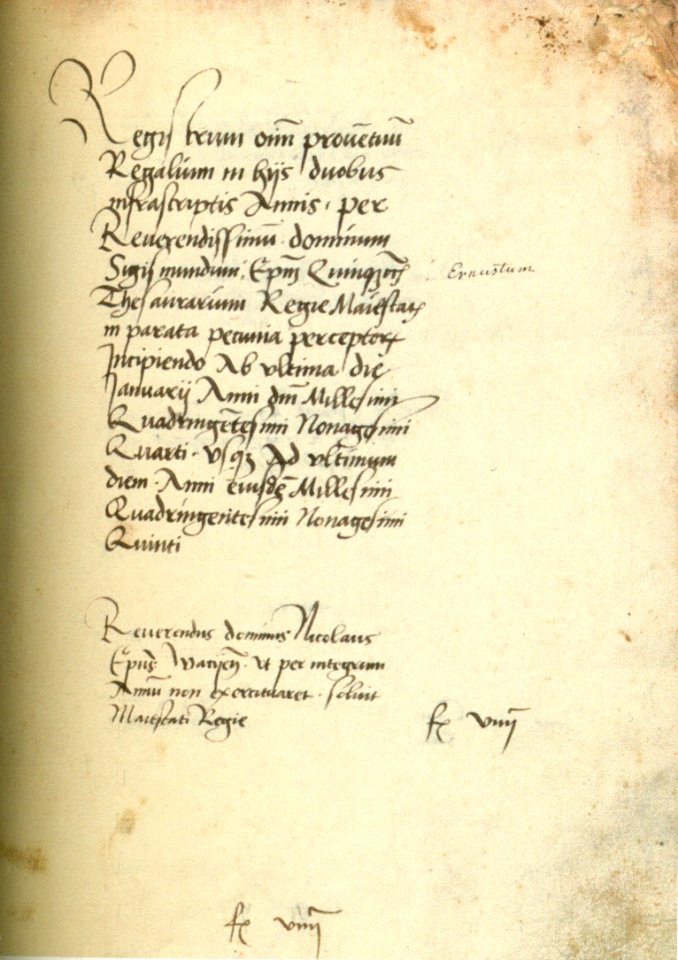 Registrum om̄ provētuū
Regalium in hijs duobus
infrascriptis Annis · per
Reverendissimū · dominum
Sigismundum · Ep̄m Quinqz
Ernustum
Thesaurarium Regie Maiestatis
in parata pecunia perceptorz
Incipiendo Ab ultima die
Januarij Anni dn̄i Millesimi
Quadringētesimi Nonagesimi
Quarti · usqz Ad ultimum
diem · Anni eiusdē Millesimi
Quadringentesimi Nonagesimi
Quinti
Reverendus dominus Nicolaus
Ep̄us · Wacijen̄ · ut per integrum
Annū non exercituaret · soluit
Maiestati Regie
fl viiij
fl viiij